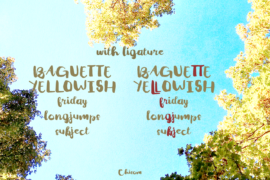 with ligature
BAGUETTE BAGUETTE
YELLOWISH YELLOWISH
friday friday
longjumps longjumps
subject subject